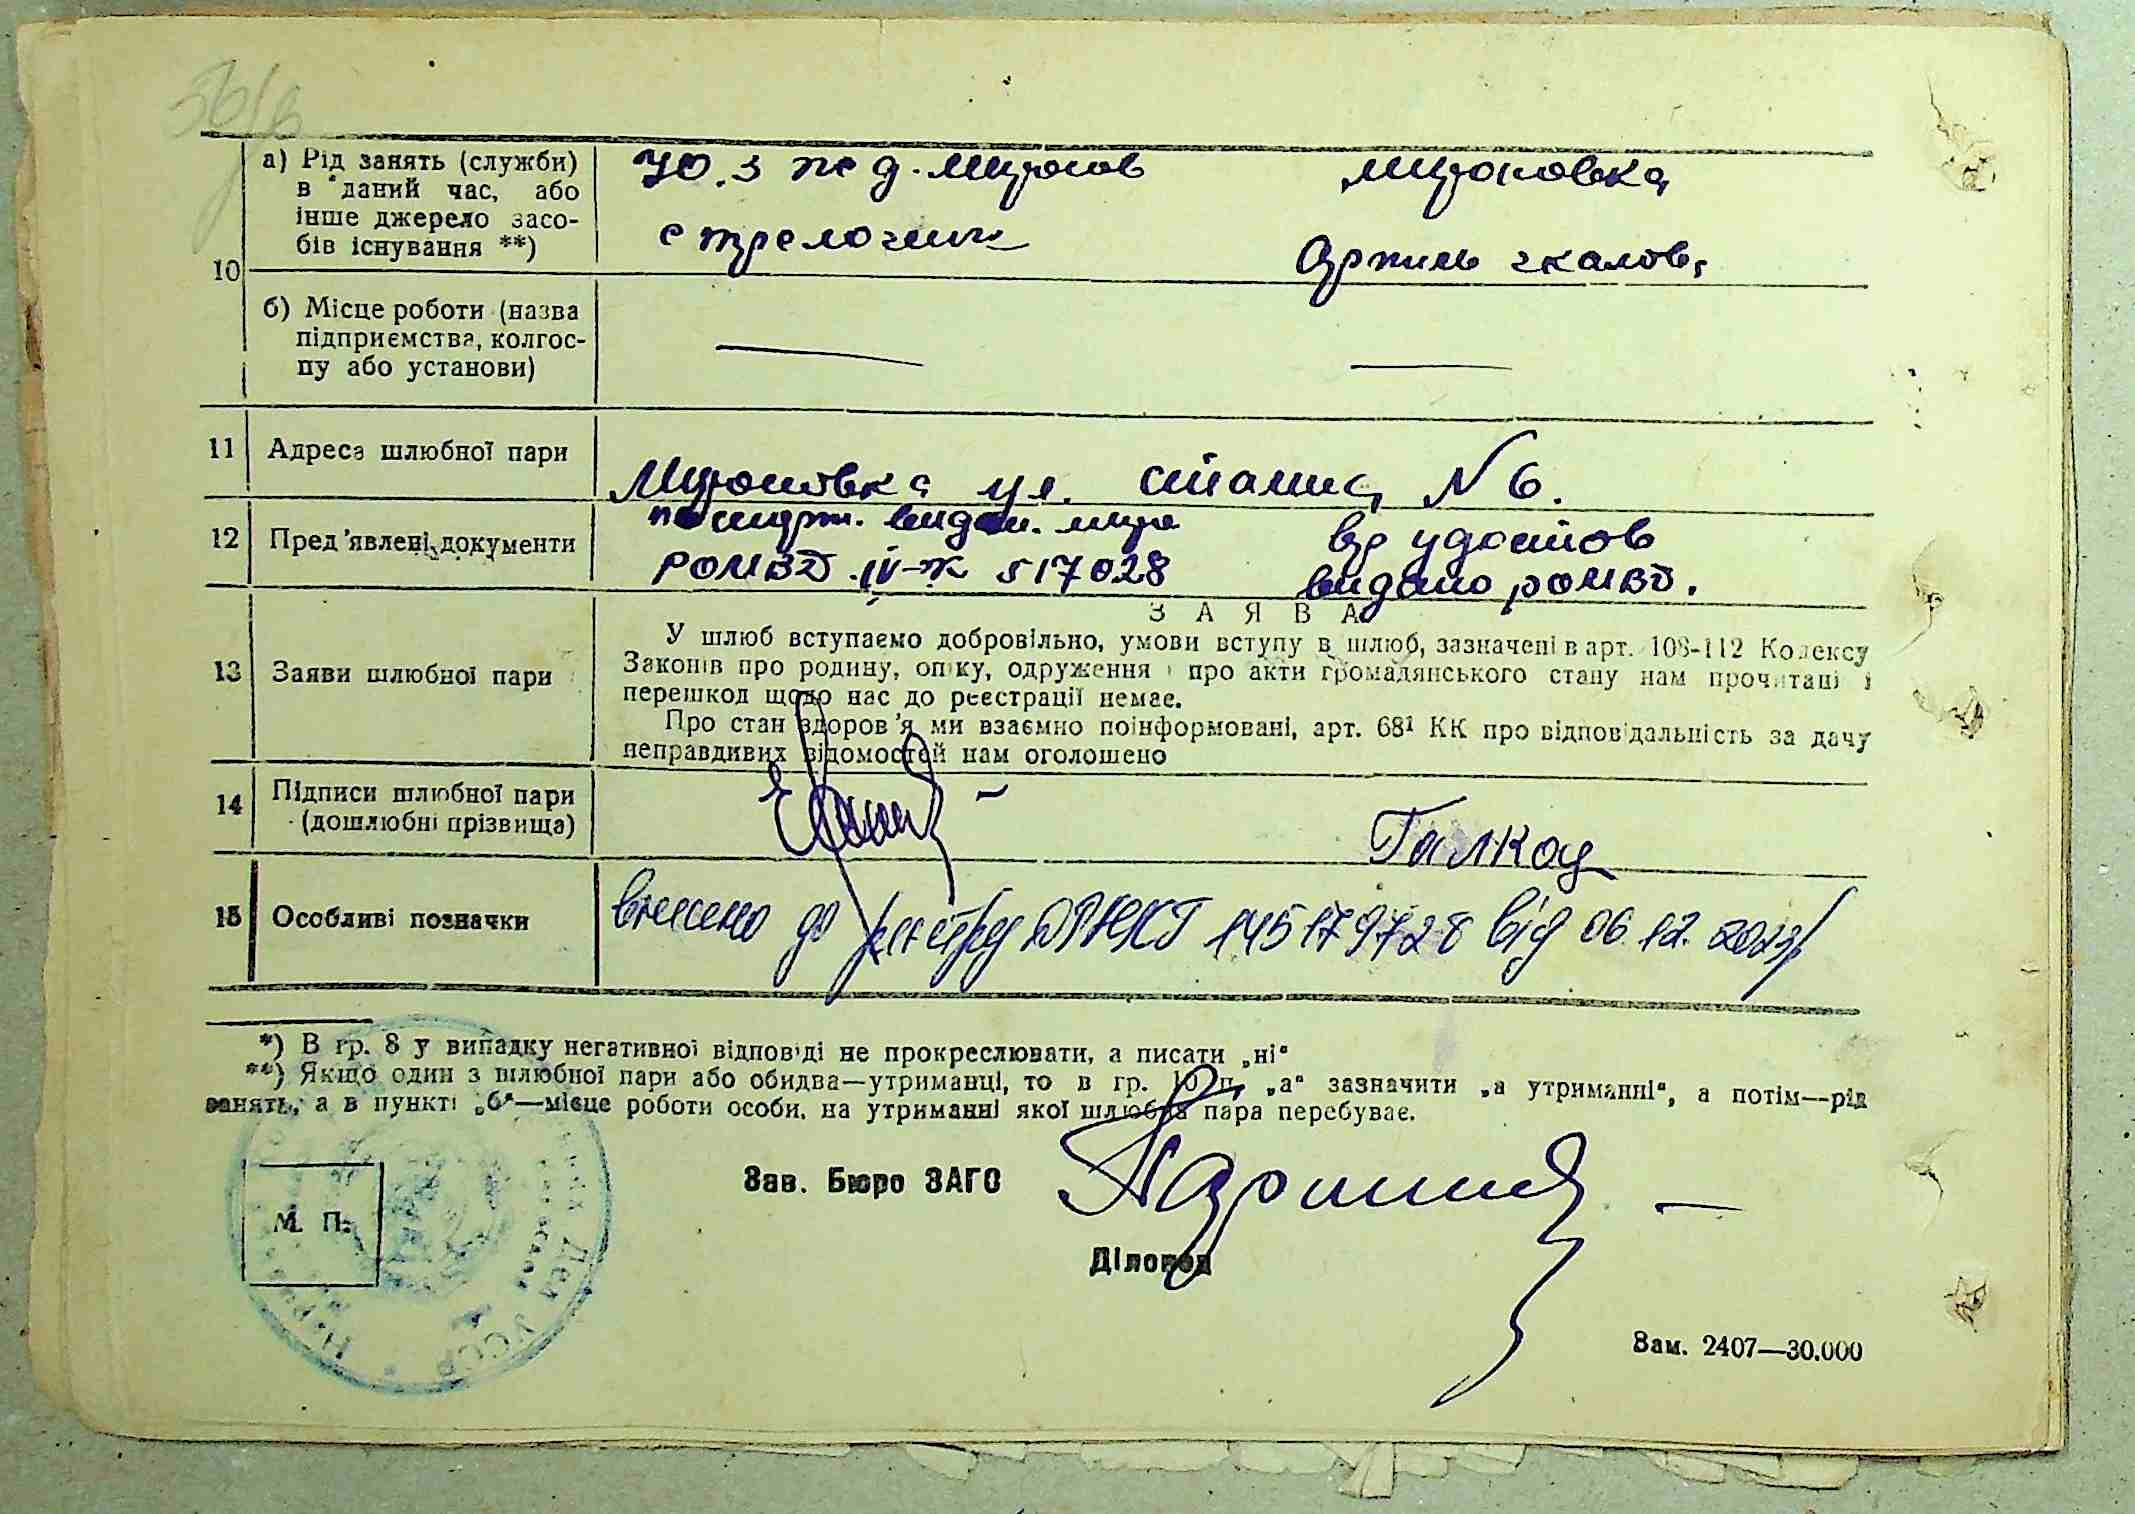 10
а) Рід занять (служби)
в даний час, або
інше джерело засо-
бів існування **)
Ю.З жед. Мирон
стрелочник
Мироновка
Артиль Чкалова
б) Місце роботи (назва
підприємства, колгос-
пу або установи)
11 Адреса шлюбної пари
Мироновка ул. Сталина N 6.
12 Пред'явлені документи
паспорт. видан. миро
РОМВД. IV-Ж 517028
вр удостов
видано РОМВД.
З А Я В А
13 Заяви шлюбної пари
У шлюб вступаємо добровільно, умови вступу в шлюб, зазначені в арт. 108-112 Кодексу
Законів про родину, опіку, одруження і про акти громадянського стану нам прочитані і
перешкод щодо нас до реєстрації немає.
Про стан здоров'я ми взаємно поінформовані, арт. 68¹ КК про відповідальність за дачу
неправдивих відомостей нам оголошено
14 Підписи шлюбної пари
(дошлюбні прізвища)
Галкоц
15 Особливі позначки
внесено до реєстру ДРАЦСГ 145179728 від 06.12.2023р
*) В гр. 8 у випадку негативної відповіді не прокреслювати, а писати „ні“
**) Якщо один з шлюбної пари або обидва—утриманці, то в гр. 10 п. „а“ зазначити „а утриманні“, а потім—рід
занять, а в пункті „б“—місце роботи особи, на утриманні якої шлюбна пара перебуває.
Зав. Бюро ЗАГС
М. П.
Діловод
Зам. 2407—30.000